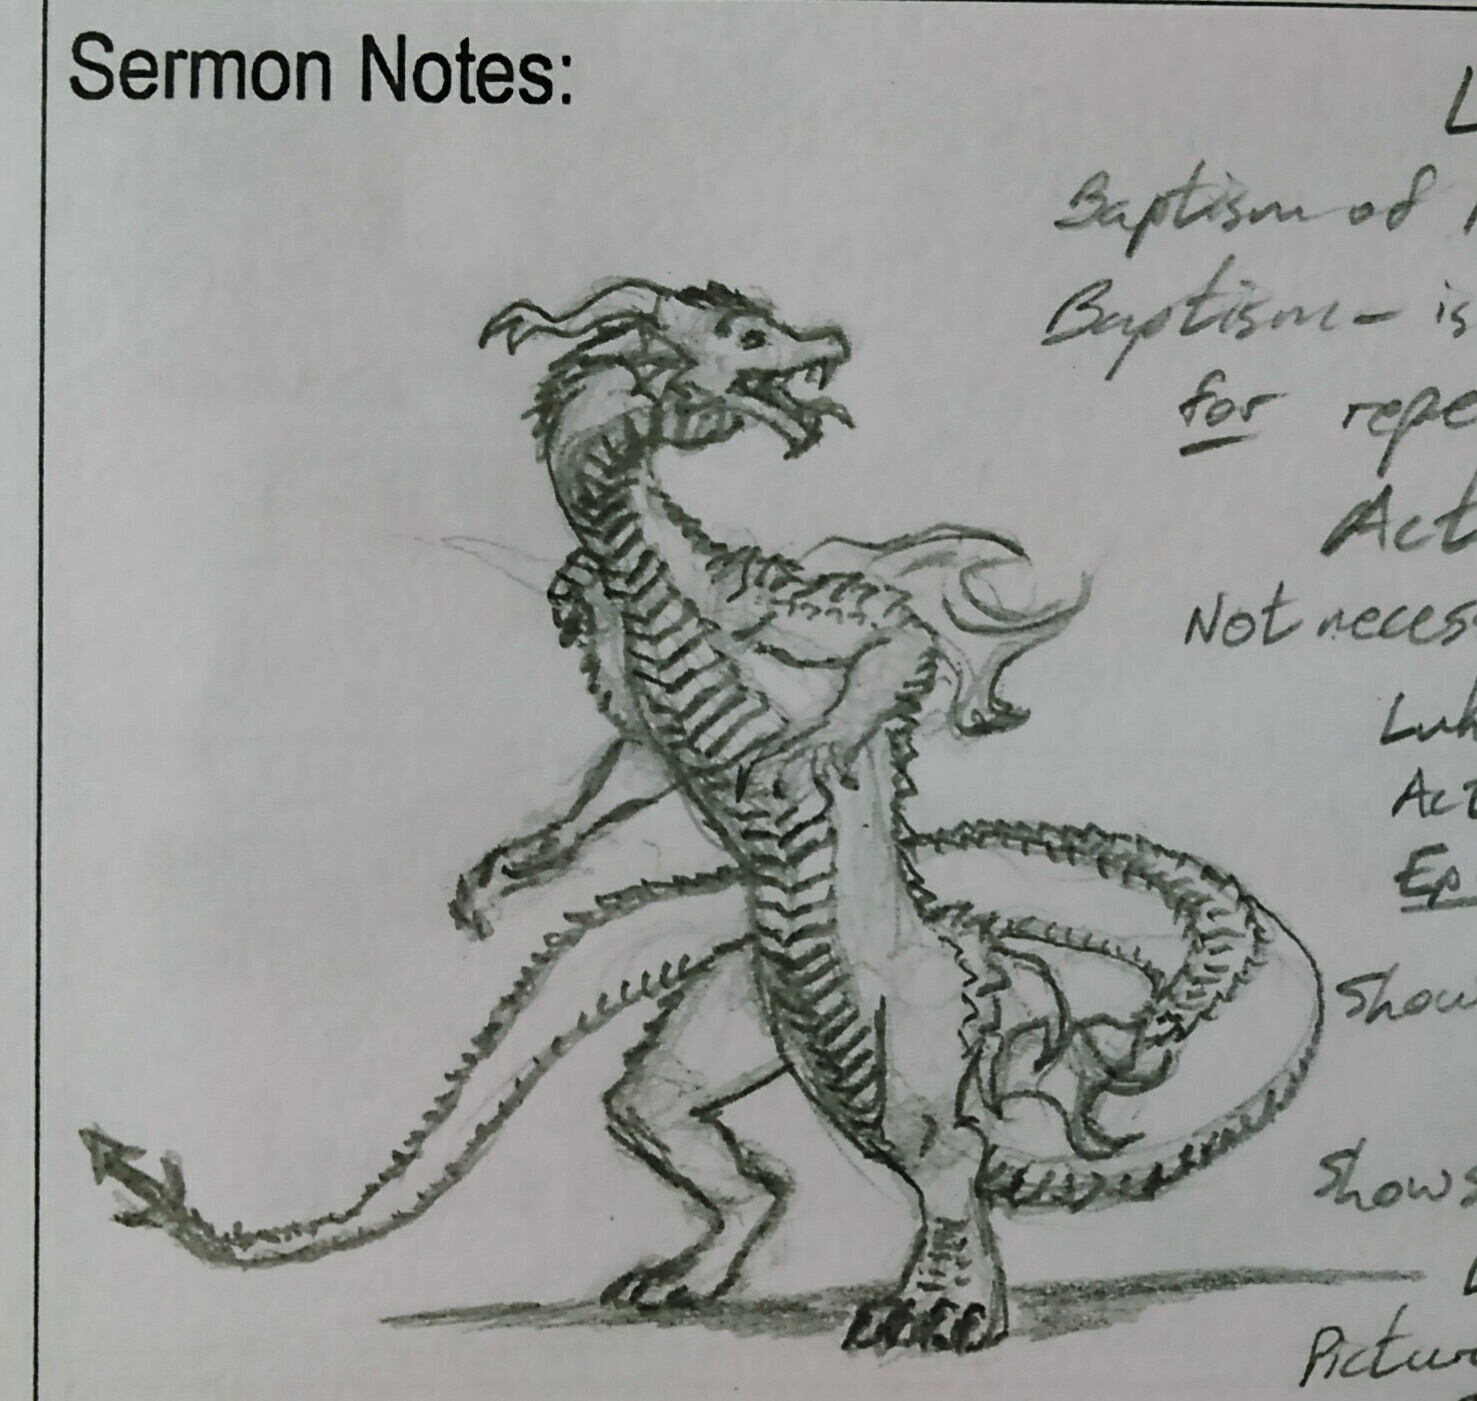 Sermon Notes:
L
Baptism of
Baptism - is
for repe
Act
Not necess
Luk
Act
Ep
Show
Shows
Pictur